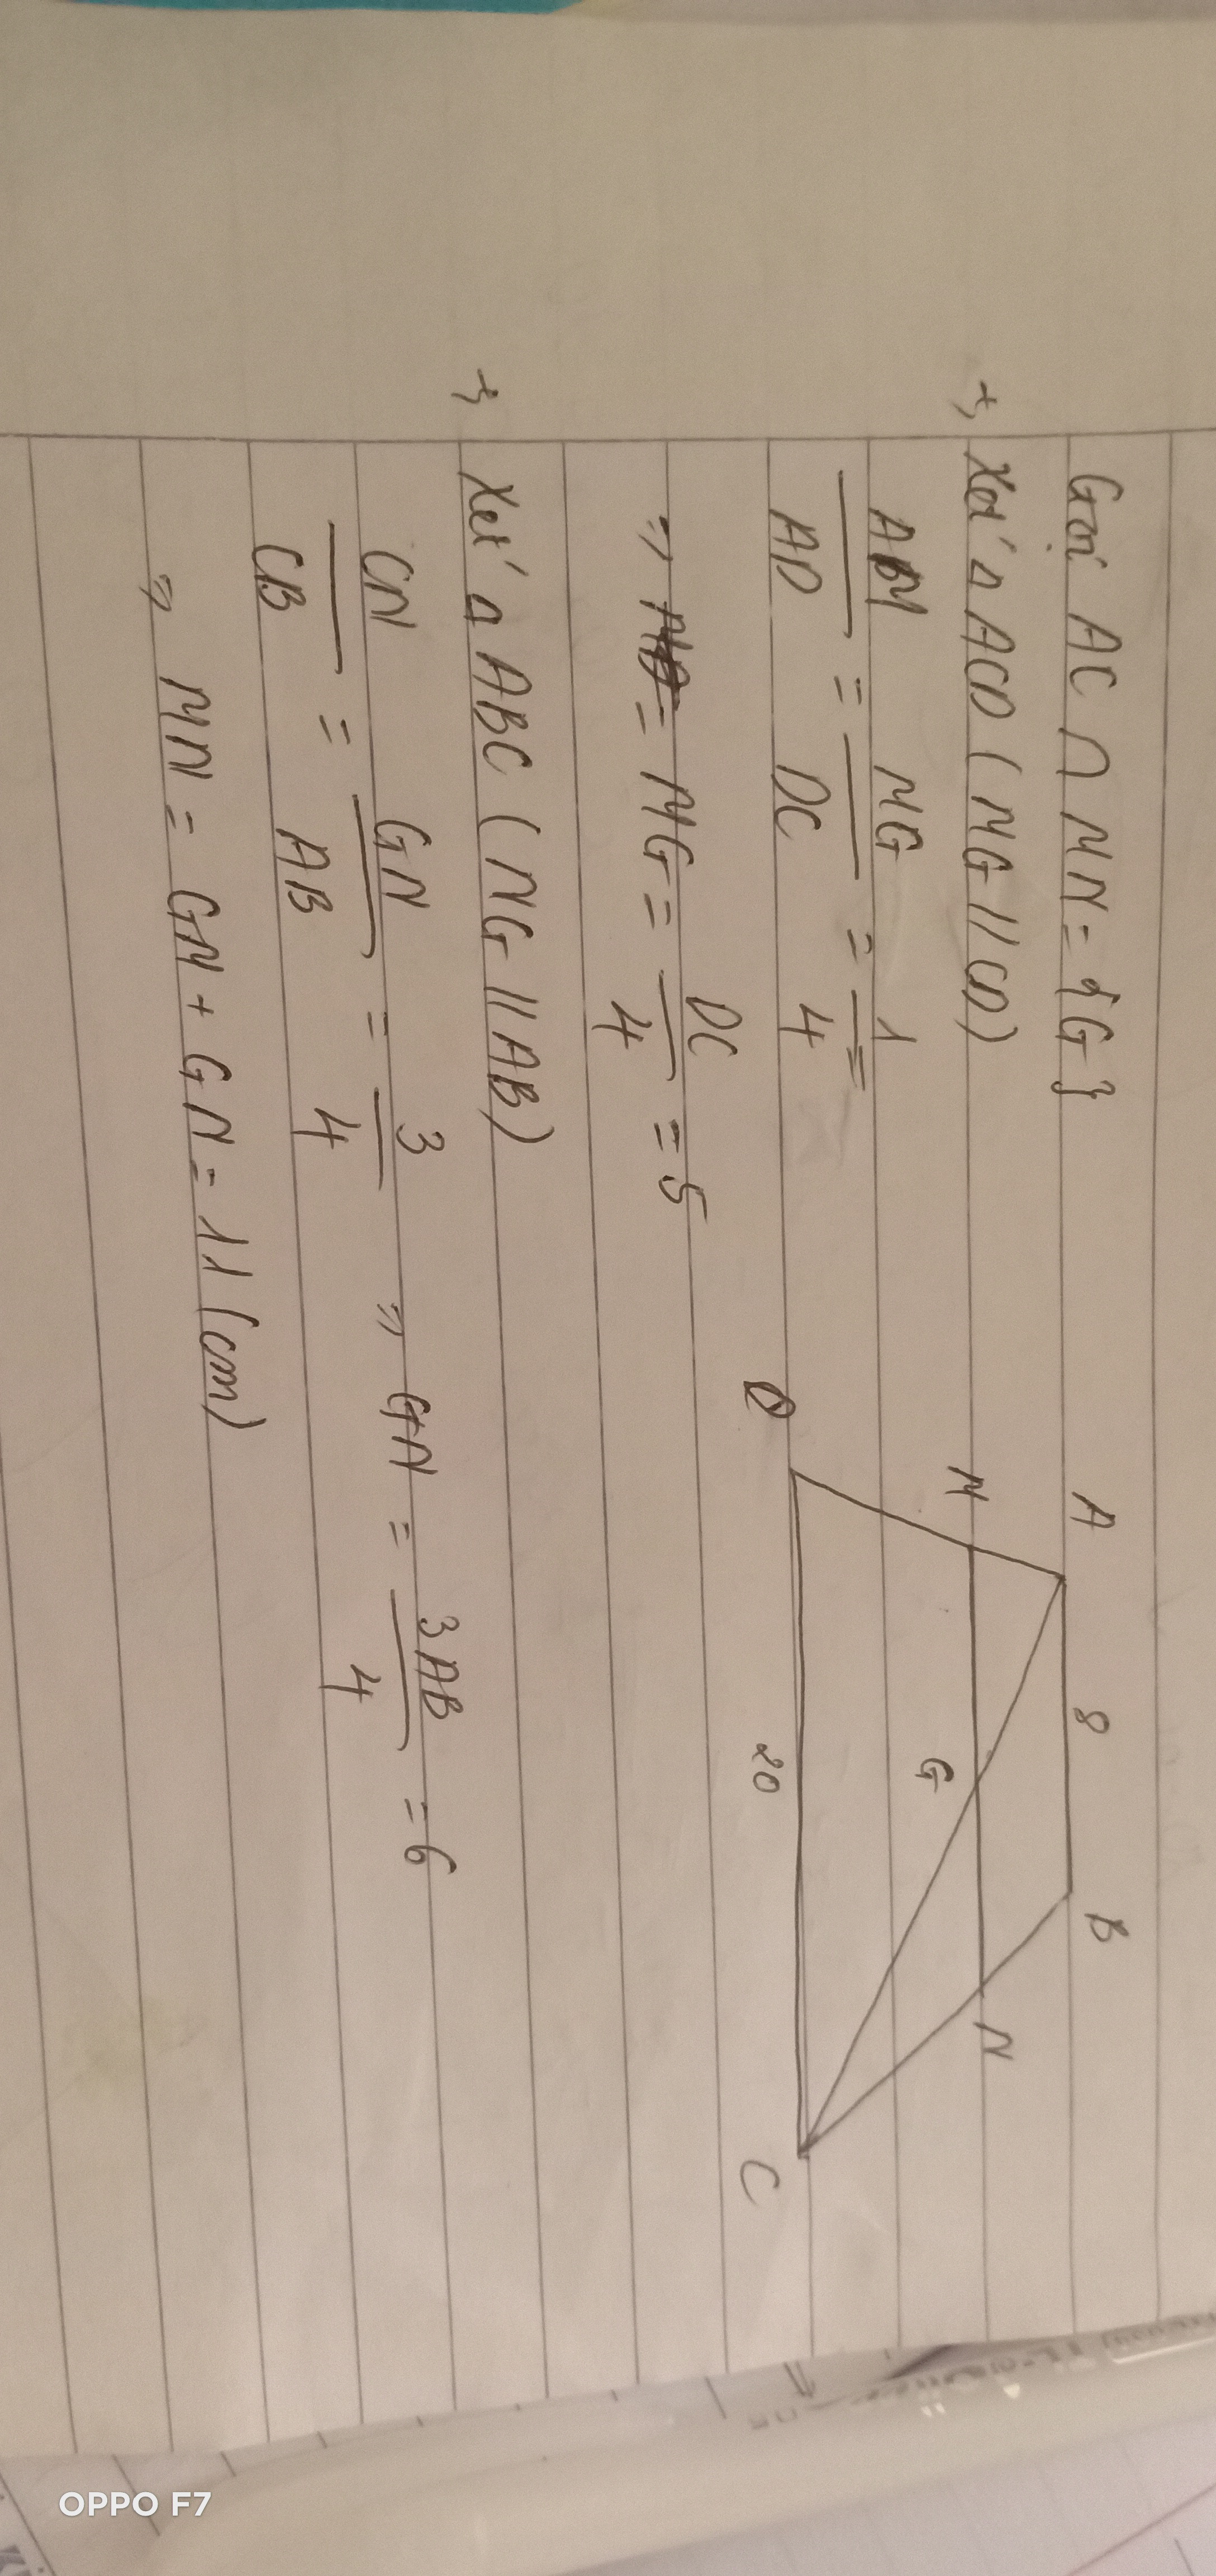 Gọi AC ∩ MN = {G}
+, Xét △ ACD ( MG // CD)
AM/AD = MG/DC = 1/4 =
=> = MG = DC/4 = 5
+, Xét △ ABC ( NG // AB)
CN/CB = GN/AB = 3/4 => GN = 3AB/4 = 6
=> MN = GM + GN = 11 (cm)
A 8 B
M G N
D 20 C
OPPO F7